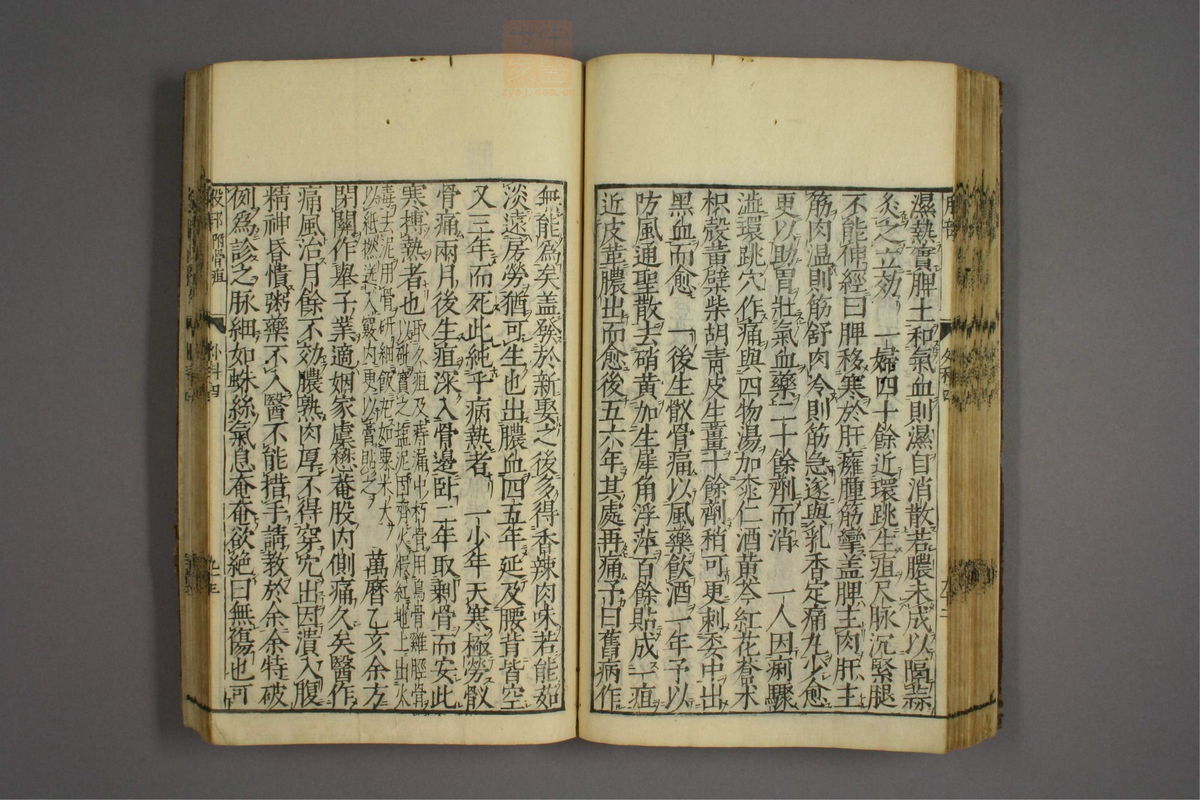 濕熱實脾土和氣血則濕自消散若膿未成以隔蒜
灸之立効 一婦四十餘近環跳生疽尺脉沉緊腿
不能伸經曰脾移寒於肝癰腫筋攣盖脾主肉肝主
筋肉温則筋舒肉冷則筋急遂與乳香定痛丸少愈
更以助胃壯氣血藥二十餘劑而消 一人因痢驟
澁環跳穴作痛與四物湯加桃仁酒黃芩紅花蒼朮
枳殼黃蘗柴胡青皮生薑十餘劑稍可更刺委中出
黑血而愈 一後生散骨痛以風藥飲酒一年予以
防風通聖散去硝黃加生犀角浮萍百餘貼成一疽
近皮革膿出而愈後五六年其處再痛予曰舊病作
無能爲矣盖發於新娶之後多得香辣肉味若能茹
淡遠房勞猶可生也出膿血四五年延及腰背皆空
又三年而死此純乎病熱者 一少年天寒極勞散
骨痛兩月後生疽深入骨邊卧二年取剩骨而安此
寒搏熱者也 取久疽及痔漏中朽骨用烏骨雞脛骨
以砒實之塩泥固濟火煅紅地上出火
毒去泥用骨研細飯丸如粟米大
以紙撚送入竅內更以膏貼之 萬曆乙亥余方
閉關作舉子業適姻家處懋菴股內側痛久矣醫作
痛風治月餘不効膿熟肉厚不得穿穴出因潰入腹
精神昏憒粥藥不入醫不能措手請教於余余特破
例爲診之脉細如蛛絲氣息奄奄欲絕曰無傷也可
股部 附骨疽 外科四